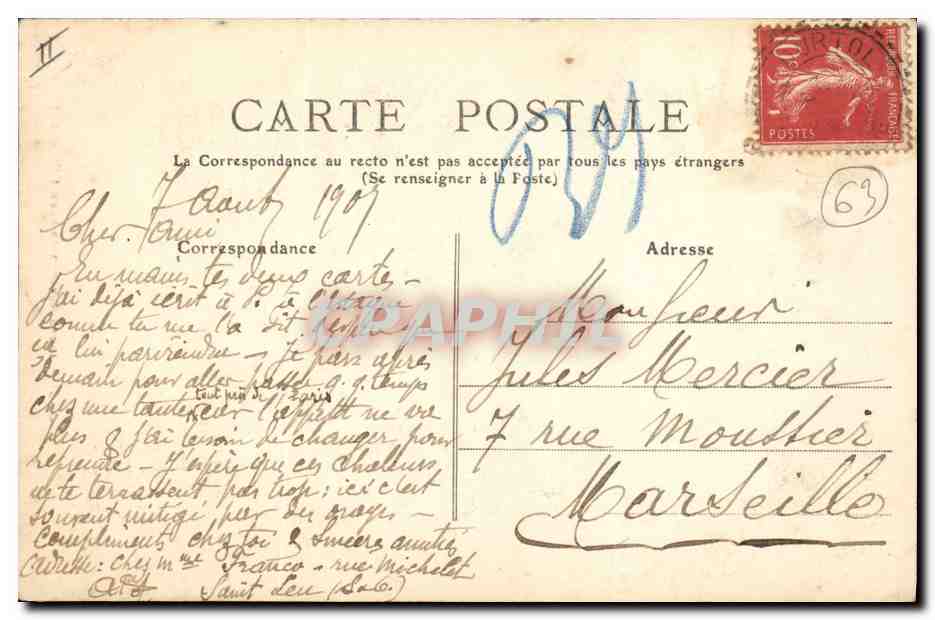 II
CARTE POSTALE
La Correspondance au recto n'est pas acceptée par tous les pays étrangers
(Se renseigner à la Poste)
63
10
POSTES
7 Aout 1907
Cher ami
Correspondance
En mains tes deux cartes –
j'ai déjà écrit à
comme tu me l'a dit
lui parviendra – Je pars après
demain pour aller passer q. q. temps
tout près de Paris
chez une tante car l'appétit ne va
plus & j'ai besoin de changer pour
reprendre – J'espère que ces chaleurs
ne te terrassent pas trop : ici c'est
souvent mitigé par des orages –
Compliments chez toi & sincères amitiés
adresse : chez Mme Franco – rue Michelet
Saint Leu (S&O)
Adresse
Monsieur
Jules Mercier
7 rue Moustier
Marseille
CPAPHIL